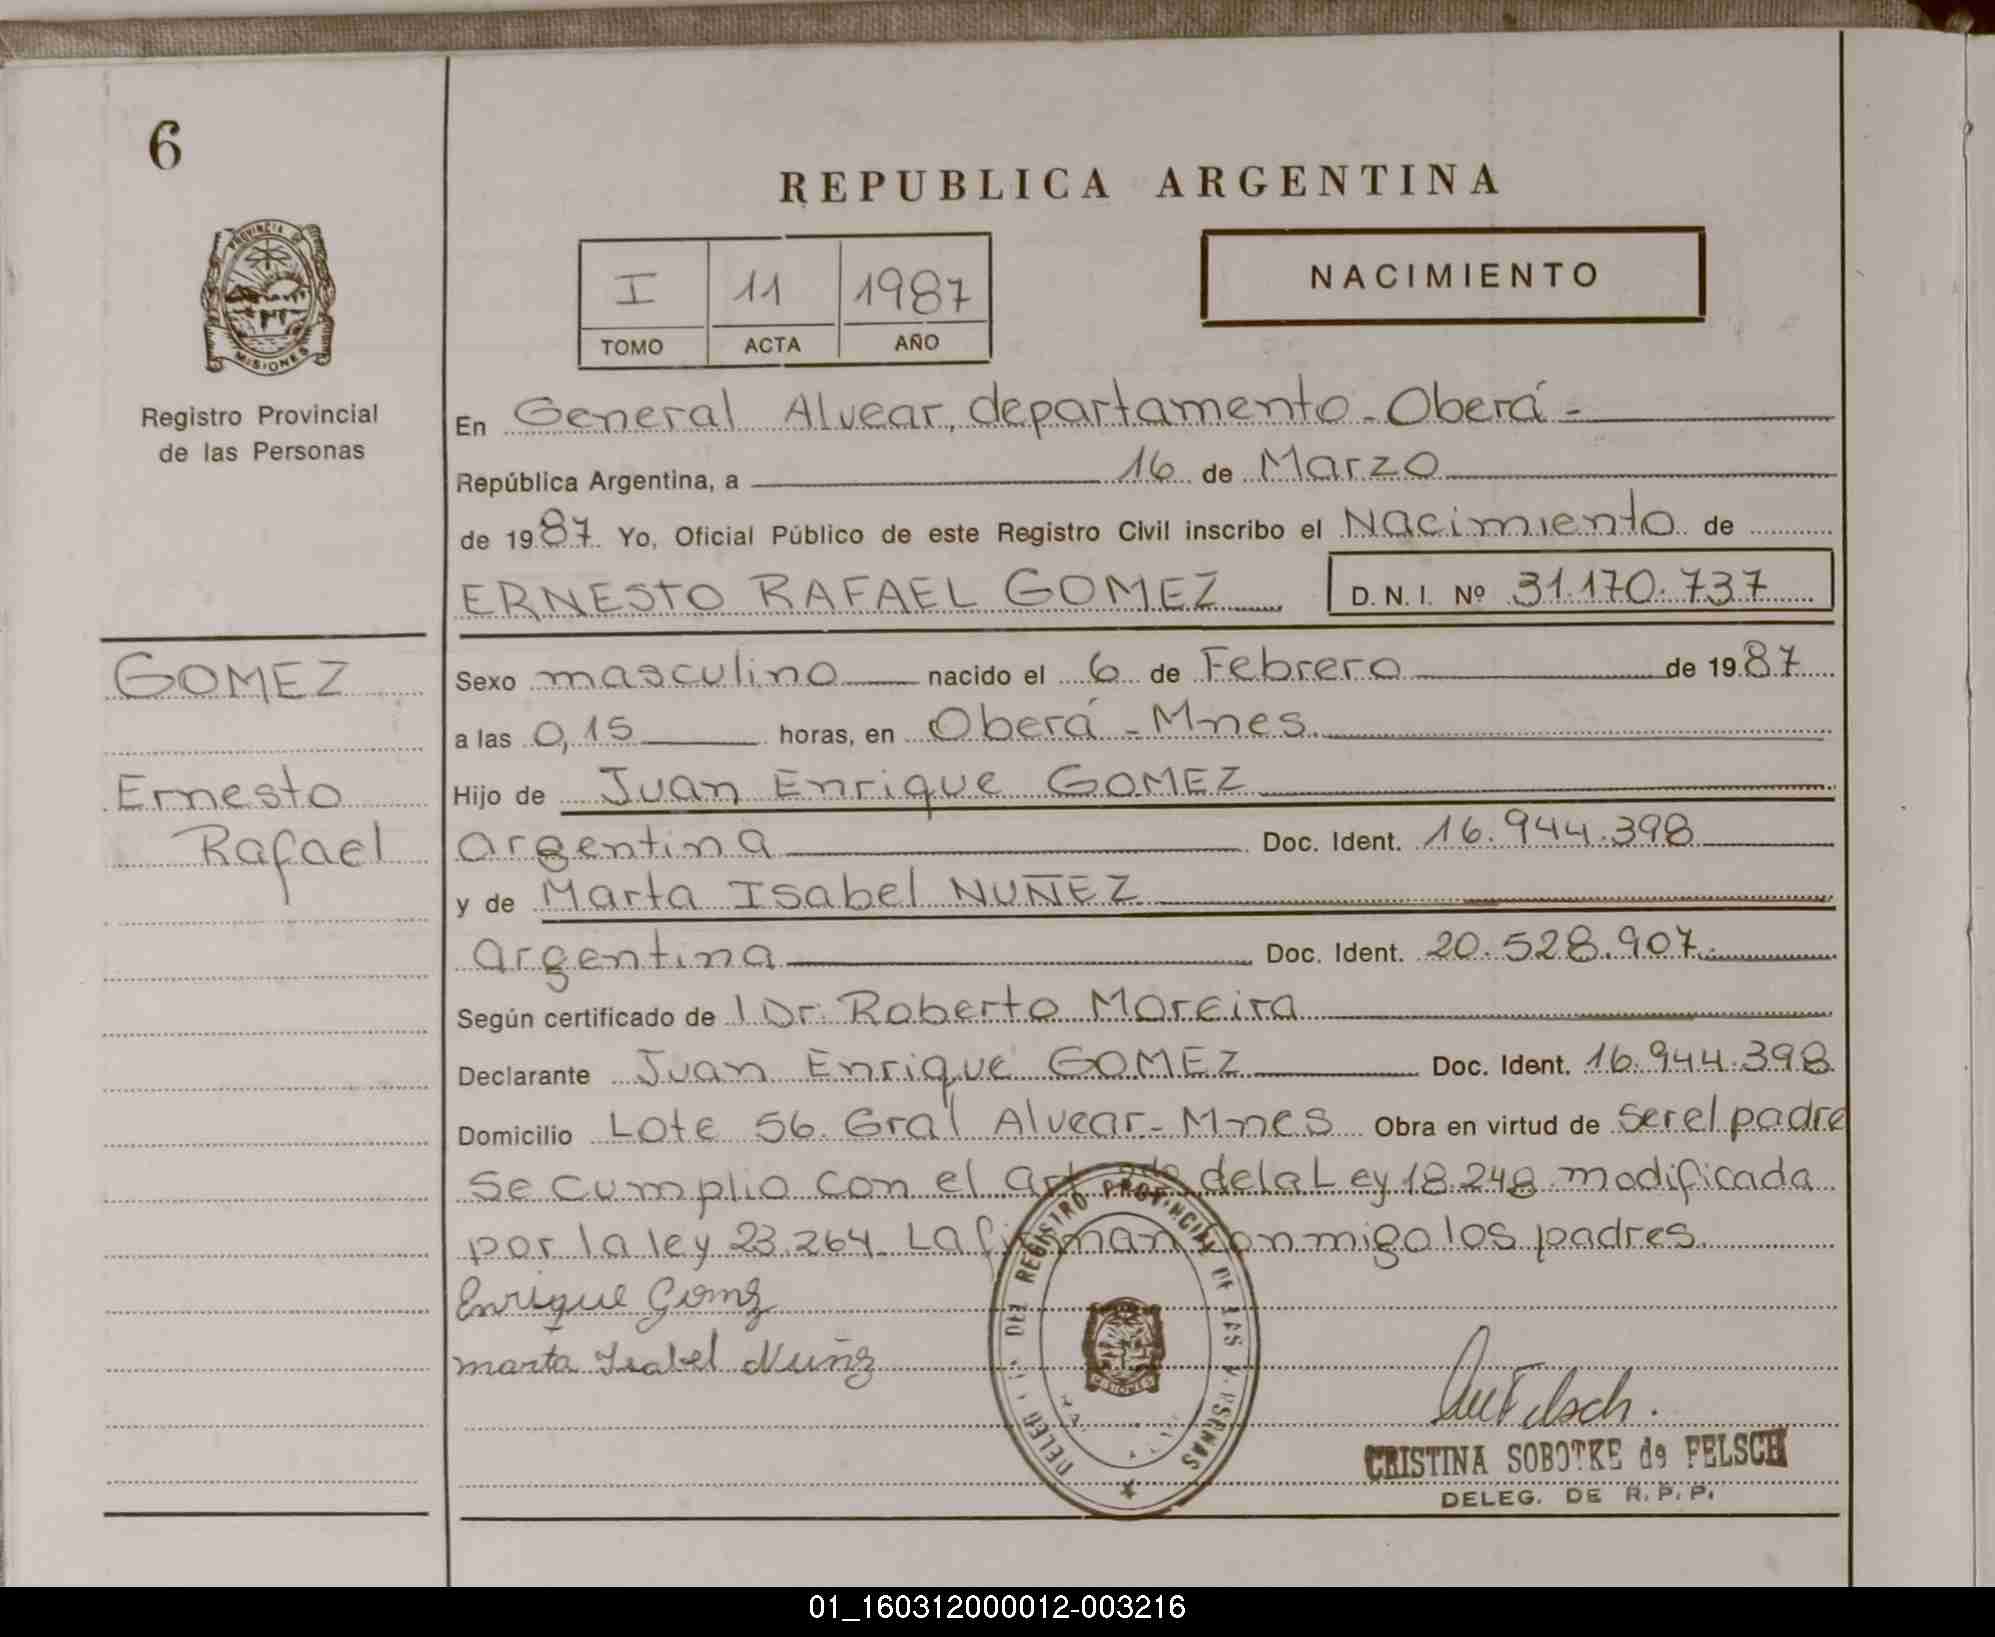 6
REPUBLICA ARGENTINA
PROVINCIA DE
MISIONES
Registro Provincial
de las Personas
I 11 1987
TOMO ACTA AÑO
NACIMIENTO
En General Alvear, departamento - Oberá -
República Argentina, a 16 de Marzo
de 1987. Yo, Oficial Público de este Registro Civil inscribo el Nacimiento de
ERNESTO RAFAEL GOMEZ D.N.I. Nº 31.170.737
GOMEZ
Ernesto
Rafael
Sexo masculino nacido el 6 de Febrero de 1987
a las 0,15 horas, en Oberá - Mnes.
Hijo de Juan Enrique GOMEZ
argentina Doc. Ident. 16.944.398
y de Marta Isabel NUÑEZ
argentina Doc. Ident. 20.528.907.
Según certificado de l Dr. Roberto Moreira
Declarante Juan Enrique GOMEZ Doc. Ident. 16.944.398
Domicilio Lote 56. Gral Alvear - Mnes Obra en virtud de ser el padre
Se cumplio con el art de la Ley 18.248 modificada
por la ley 23.264. La firman conmigo los padres.
Enrique Gomez
marta Isabel Nuñez
DEL REGISTRO PROVINCIAL DE LAS
MISIONES
CRISTINA SOBOTKE de FELSCH
DELEG. DE R.P.P.
01_160312000012-003216